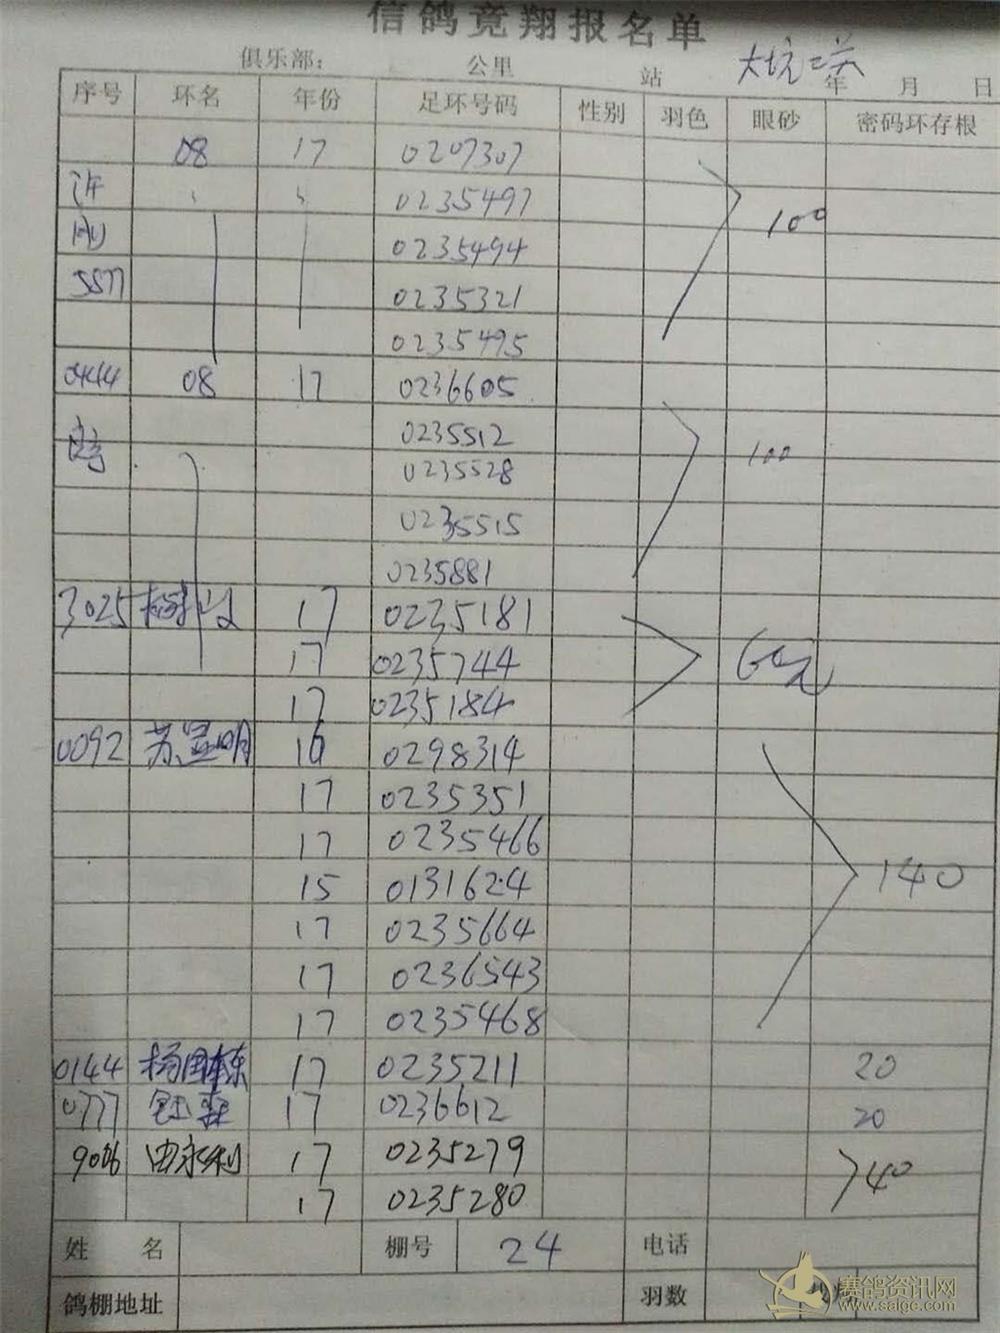 信鸽竞翔报名单
俱乐部： 公里 站 年 月 日
序号 环名 年份 足环号码 性别 羽色 眼砂 密码环存根
08 17 0207307
许 0235497
刚 0235494 100
5577 0235321
0235495
0444 08 17 0236605
0235512
0235528 100
0235515
0235881
3025 17 0235181
17 0235744 60元
17 0235184
0092 苏显明 16 0298314
17 0235351
17 0235466
15 0131624 140
17 0235664
17 0236543
17 0235468
0144 杨国栋 17 0235211 20
0777 17 0236612 20
9006 由永利 17 0235279
17 0235280 40
姓名 棚号 24 电话
鸽棚地址 羽数
赛鸽资讯网
www.saigc.com